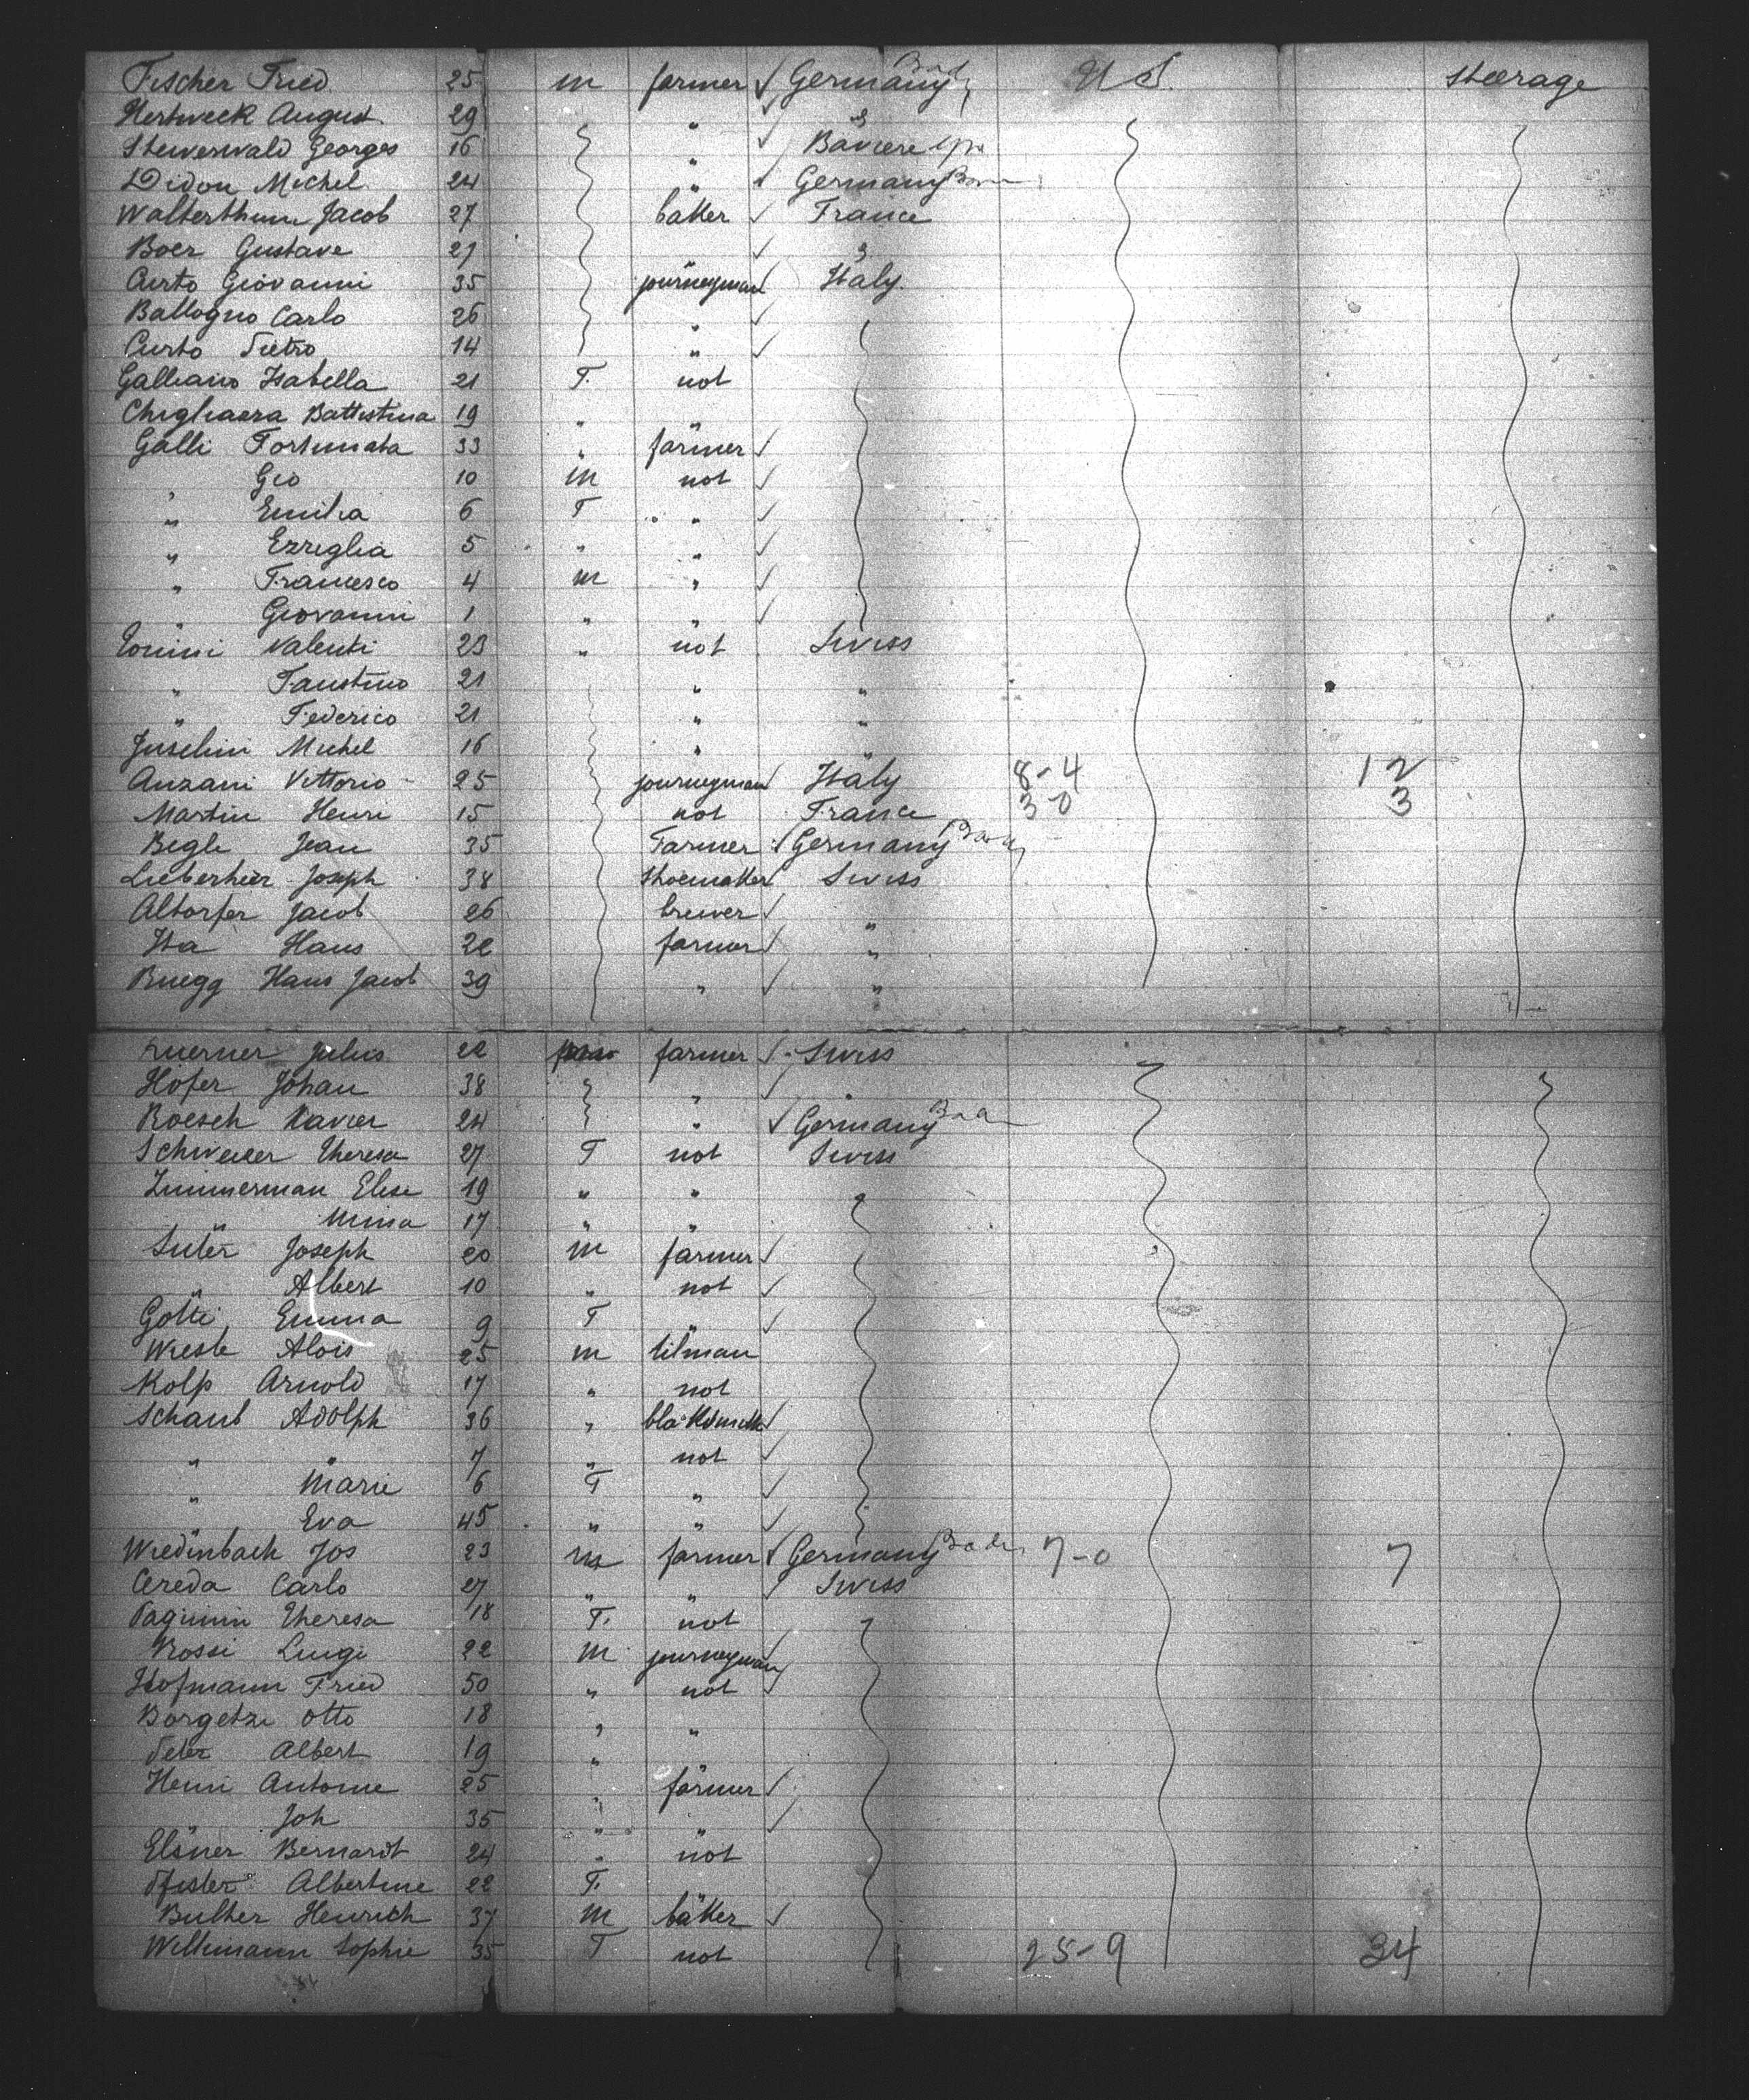 Fischer Fried 25 m farmer ✓ Germany U S. steerage
Hertweck August 29 " ✓ "
Stewerwald Georges 16 " ✓ Baviere
Didon Michel 24 " ✓ Germany
Walterthum Jacob 27 baker ✓ France
Boer Gustave 27 ✓ "
Curto Giovanni 35 journeyman ✓ Italy.
Ballogno Carlo 26 " ✓
Curto Pietro 14 " ✓
Galliano Isabella 21 F. not
Chigliazza Battistina 19 " "
Galli Fortunata 33 " farmer ✓
" Gio 10 m not ✓
" Emilia 6 F " ✓
" Ezzeglia 5 " " ✓
" Francesco 4 m " ✓
" Giovanni 1 " " ✓
Tonini Valenti 23 " not Swiss
" Faustino 21 " "
" Federico 21 " "
Juselini Michel 16 " "
Anzani Vittorio 25 journeyman ✓ Italy 8-4 12
Martin Henri 15 not France 3-0 3
Begle Jean 35 Farmer ✓ Germany
Lieberherr Joseph 38 Shoemaker ✓ Swiss
Altorfer Jacob 26 brewer ✓ "
Ita Hans 22 farmer ✓ "
Ruegg Hans Jacob 39 " ✓ "
Luerner Julius 22 farmer ✓ Swiss
Hofer Johan 38 " ✓
Roesch Xavier 24 " ✓ Germany
Schweizer Theresa 27 F not Swiss
Zimmerman Elise 19 " "
Mina 17 " "
Suter Joseph 20 m farmer ✓
" Albert 10 " not ✓
Gotti Emma 9 F " ✓
Wieste Alois 25 m tilman
Kolp Arnold 17 " not
Schaub Adolph 36 " blaksmith ✓
" " 7 " not ✓
" Marie 6 F " ✓
" Eva 45 " " ✓
Wiedinbach Jos 23 m farmer ✓ Germany Baden 7-0 7
Cereda Carlo 27 " " ✓ Swiss
Pagimin Theresa 18 F. not
Rossi Luigi 22 m journeyman ✓
Hofmann Fried 50 " not ✓
Borgetzi Otto 18 " "
Peter Albert 19 "
Henri Antoine 25 " farmer ✓
" Joh 35 " " ✓
Elsner Bernardt 24 " not
Pfister Albertine 22 F.
Bulher Heinrich 37 m baker ✓
Willimann Sophie 35 F not 25-9 34